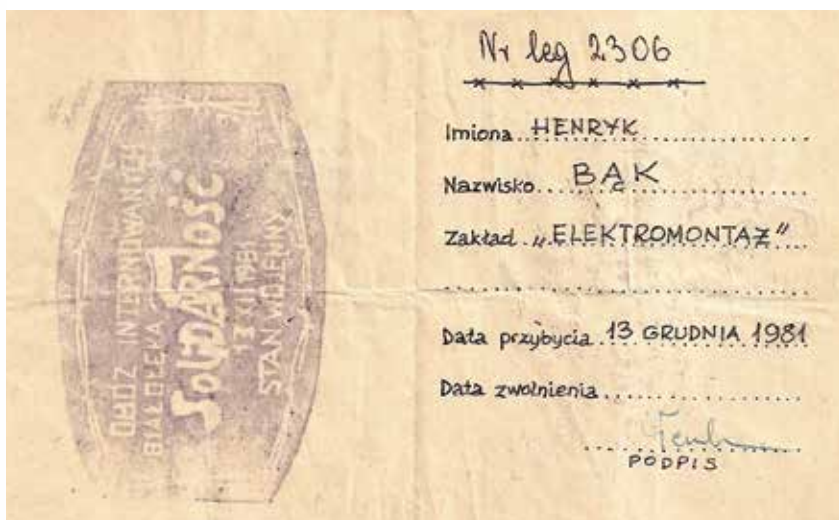 OBÓZ INTERNOWANYCH
BIAŁOŁĘKA
SOLIDARNOŚĆ
13 XII 1981
STAN WOJENNY
Nr leg 2306
Imiona HENRYK
Nazwisko BĄK
Zakład „ELEKTROMONTAŻ”
Data przybycia 13 GRUDNIA 1981
Data zwolnienia
PODPIS